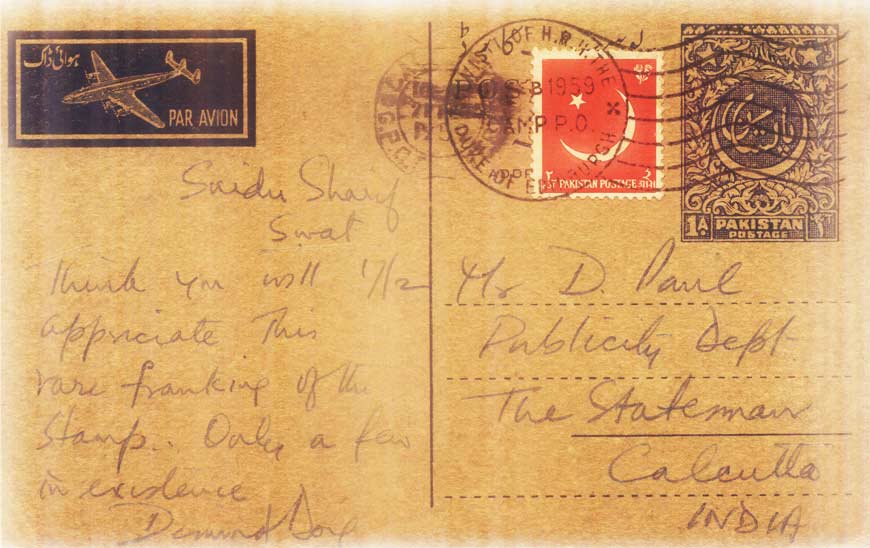 ہوائی ڈاک
PAR AVION
VISIT OF H.R.H. THE
DUKE OF EDINBURGH
1959
CAMP P.O.
PAKISTAN POSTAGE
1A
PAKISTAN
POSTAGE
Saidu Sharif
Swat
17/2
Think you will
appriciate this
rare franking of the
stamp.. Only a few
in existence
Desmond Doig
Mr D. Paul
Publicity Dept
The Statesman
Calcutta
INDIA